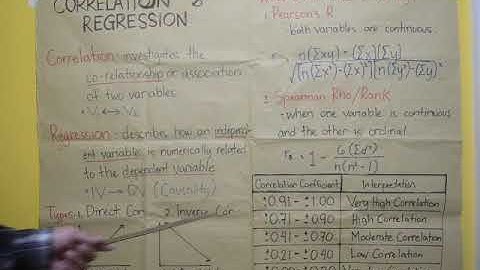 CORRELATION &
REGRESSION
Correlation - investigates the
co-relationship or association
of two variables
• V₁ ↔ V₂
Regression - describe how an independ-
ent variable is numerically related
to the dependent variable
• IV → DV (Causality)
Types: 1. Direct Cor. 2. Inverse Cor.
1. Pearson's R
- both variables are continuous.
r = n(Σxy) - (Σx)(Σy)
√[n(Σx²) - (Σx)²][n(Σy²) - (Σy)²
2. Spearman Rho/Rank
- when one variable is continuous
and the other is ordinal
rₛ = 1 - 6(Σd²)
n(n²-1)
Correlation Coefficient Interpretation
±0.91 - ±1.00 Very High Correlation
±0.71 - ±0.90 High Correlation
±0.41 - ±0.70 Moderate Correlation
±0.21 - ±0.40 Low Correlation